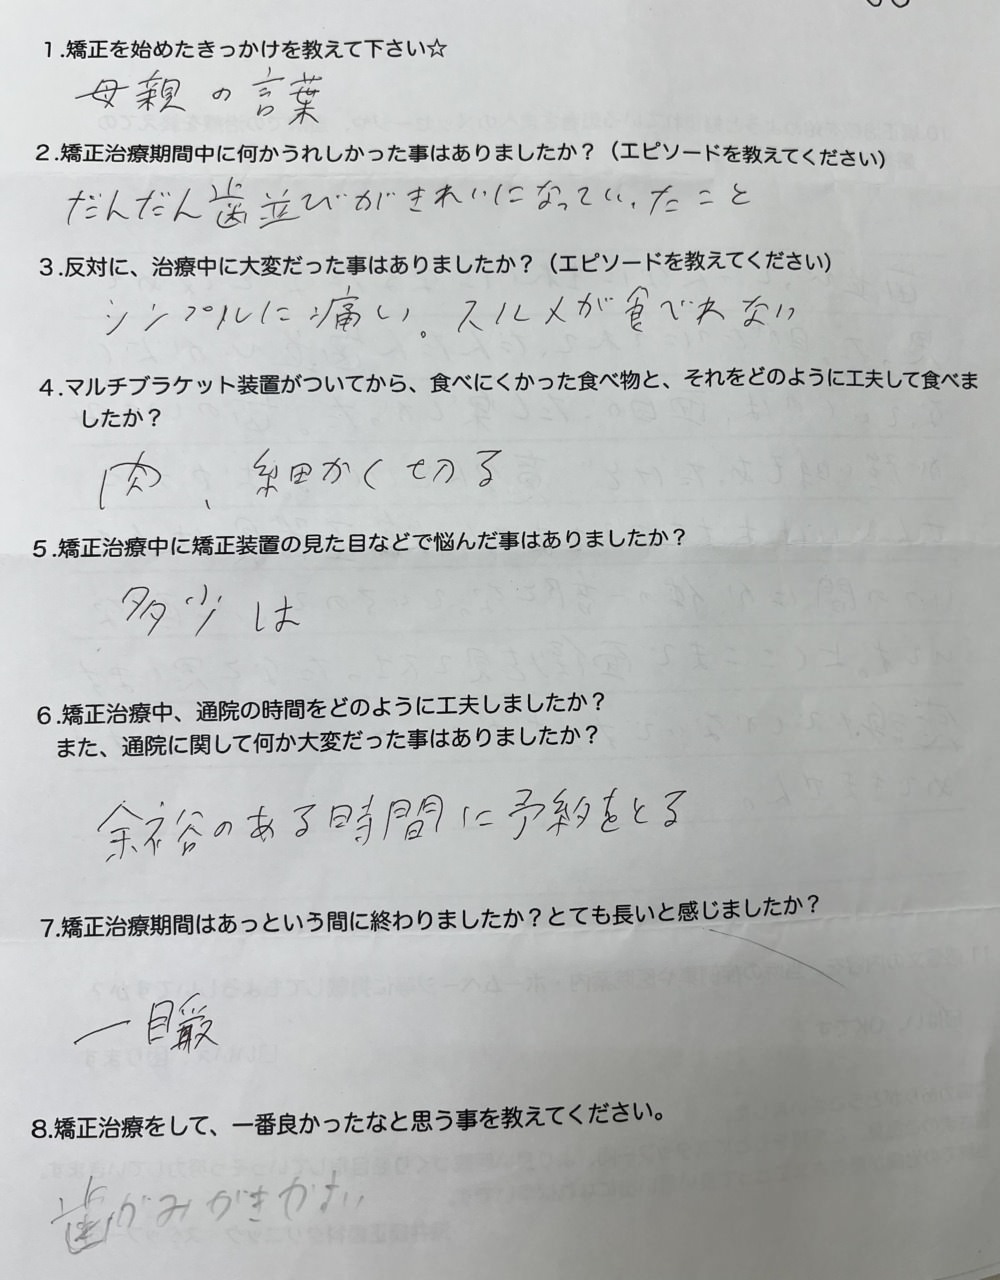 1.矯正を始めたきっかけを教えて下さい☆
母親の言葉
2.矯正治療期間中に何かうれしかった事はありましたか？（エピソードを教えてください）
だんだん歯並びがきれいになっていったこと
3.反対に、治療中に大変だった事はありましたか？（エピソードを教えてください）
シンプルに痛い。スルメが食べれない
4.マルチブラケット装置がついてから、食べにくかった食べ物と、それをどのように工夫して食べま
したか？
肉、細かく切る
5.矯正治療中に矯正装置の見た目などで悩んだ事はありましたか？
多少は
6.矯正治療中、通院の時間をどのように工夫しましたか？
また、通院に関して何か大変だった事はありましたか？
余裕のある時間に予約をとる
7.矯正治療期間はあっという間に終わりましたか？とても長いと感じましたか？
一瞬
8.矯正治療をして、一番良かったなと思う事を教えてください。
歯がみがきがい